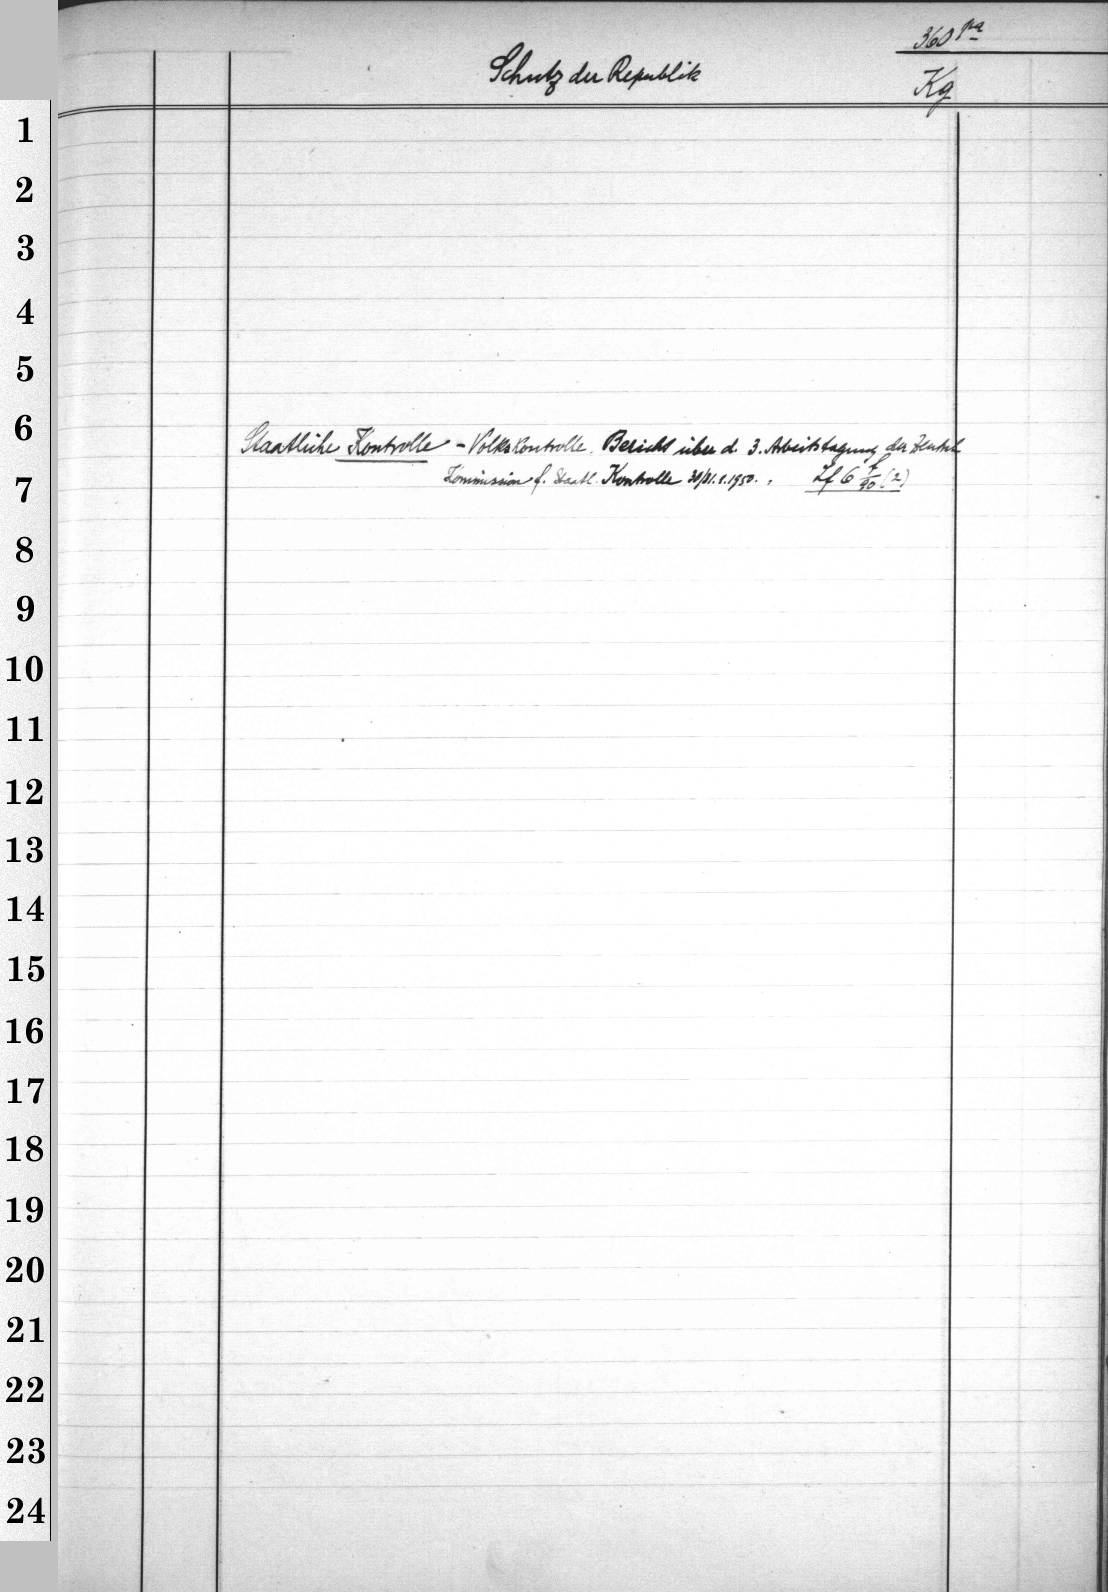 360
Schutz der Republik
Kg
1
2
3
4
5
6
Staatliche Kontrolle - Volkskontrolle. Bericht über d. 3. Arbeitstagung der Zentral
7
Kommission f. Staatl. Kontrolle 30/31.1.1950.
Zf 6 (2)
8
9
10
11
12
13
14
15
16
17
18
19
20
21
22
23
24